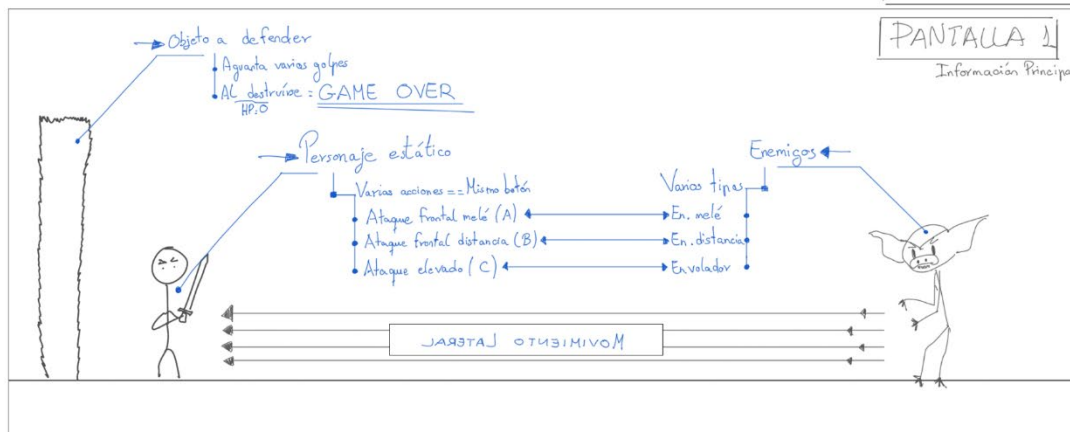 PANTALLA 1
Información Principa
Objeto a defender
Aguanta varios golpes
AL destruirse = GAME OVER
HP:0
Personaje estático
Varias acciones == Mismo botón
Ataque frontal melé (A)
Ataque frontal distancia (B)
Ataque elevado (C)
Enemigos
Varios tipos
En. melé
En. distancia
En volador
MOVIMIENTO LATERAL